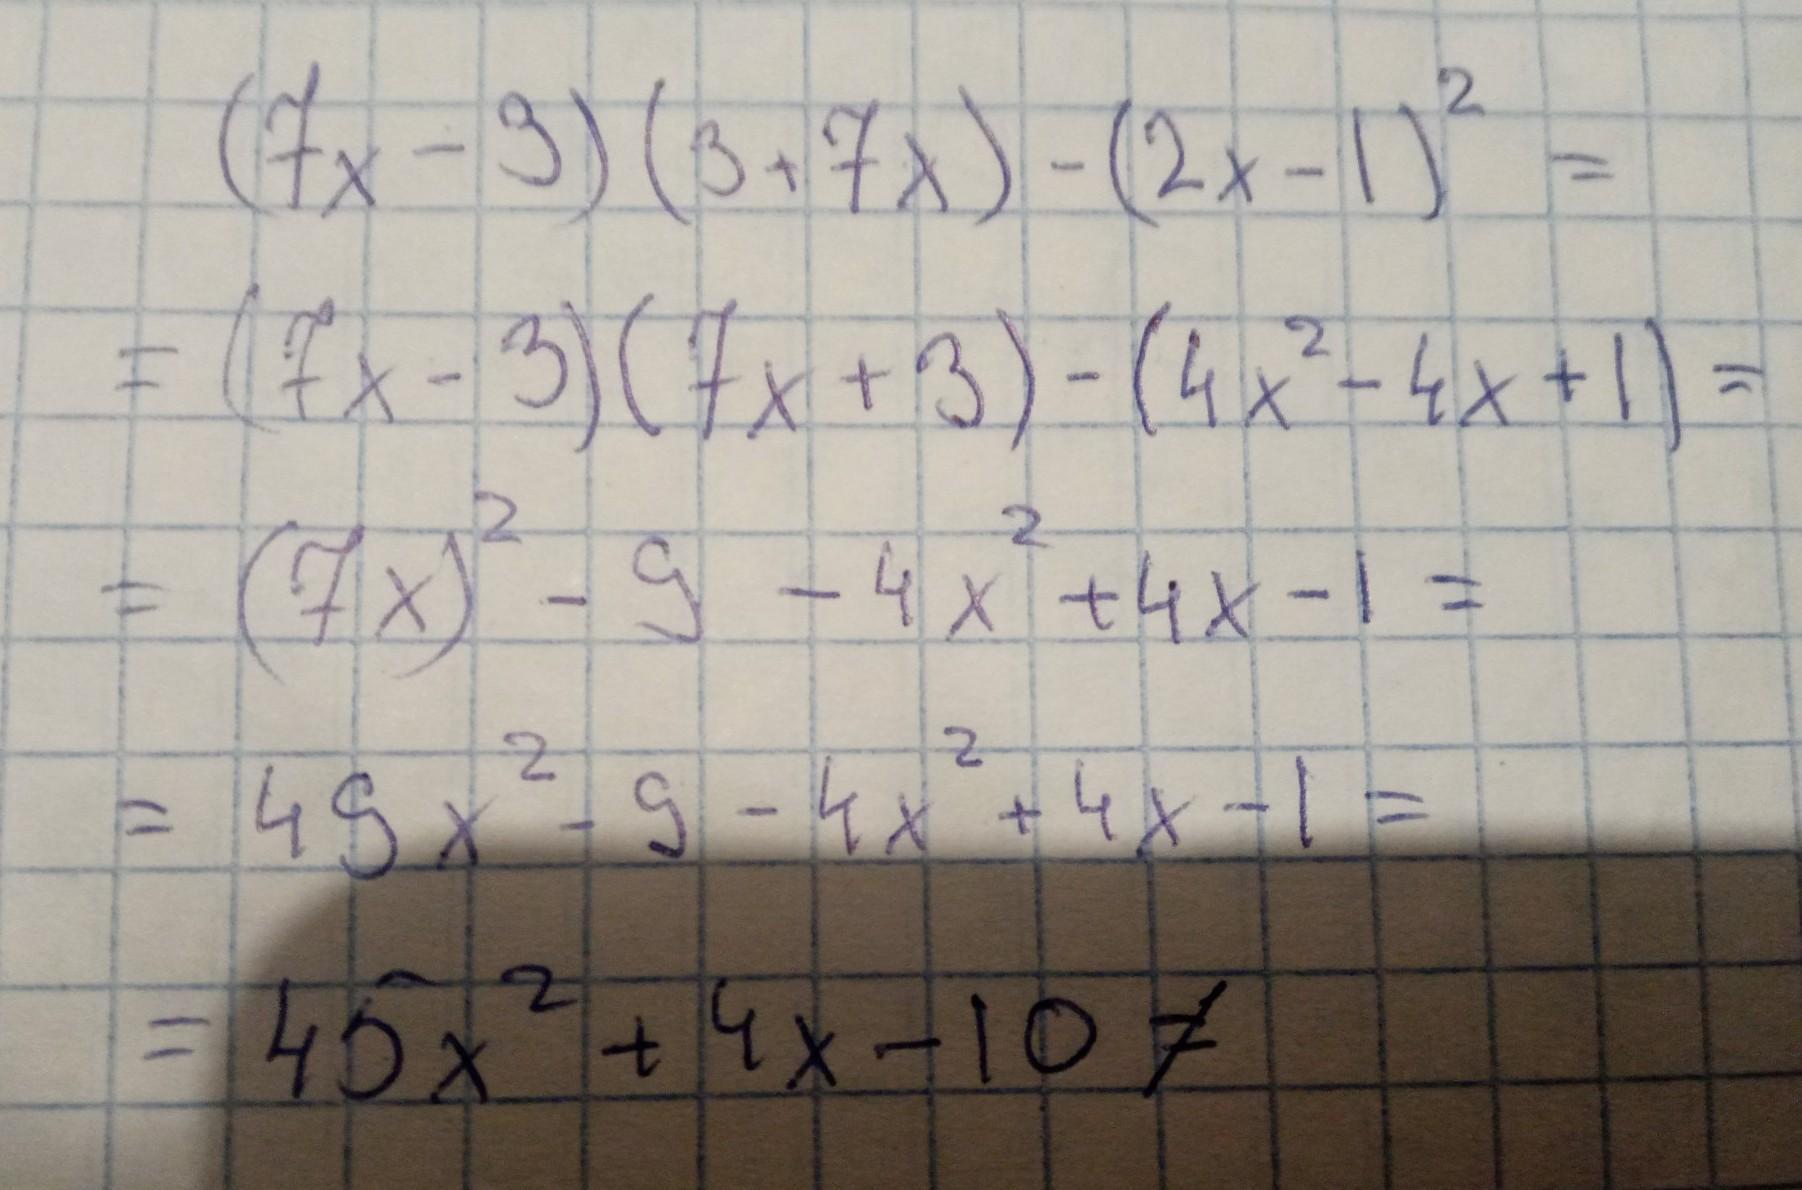 (7x - 3)(3+7x) - (2x-1)² =
= (7x-3)(7x+3) - (4x²-4x+1) =
= (7x)² - 9 - 4x² + 4x - 1 =
= 49x² - 9 - 4x² + 4x - 1 =
= 45x² + 4x - 10 ≠